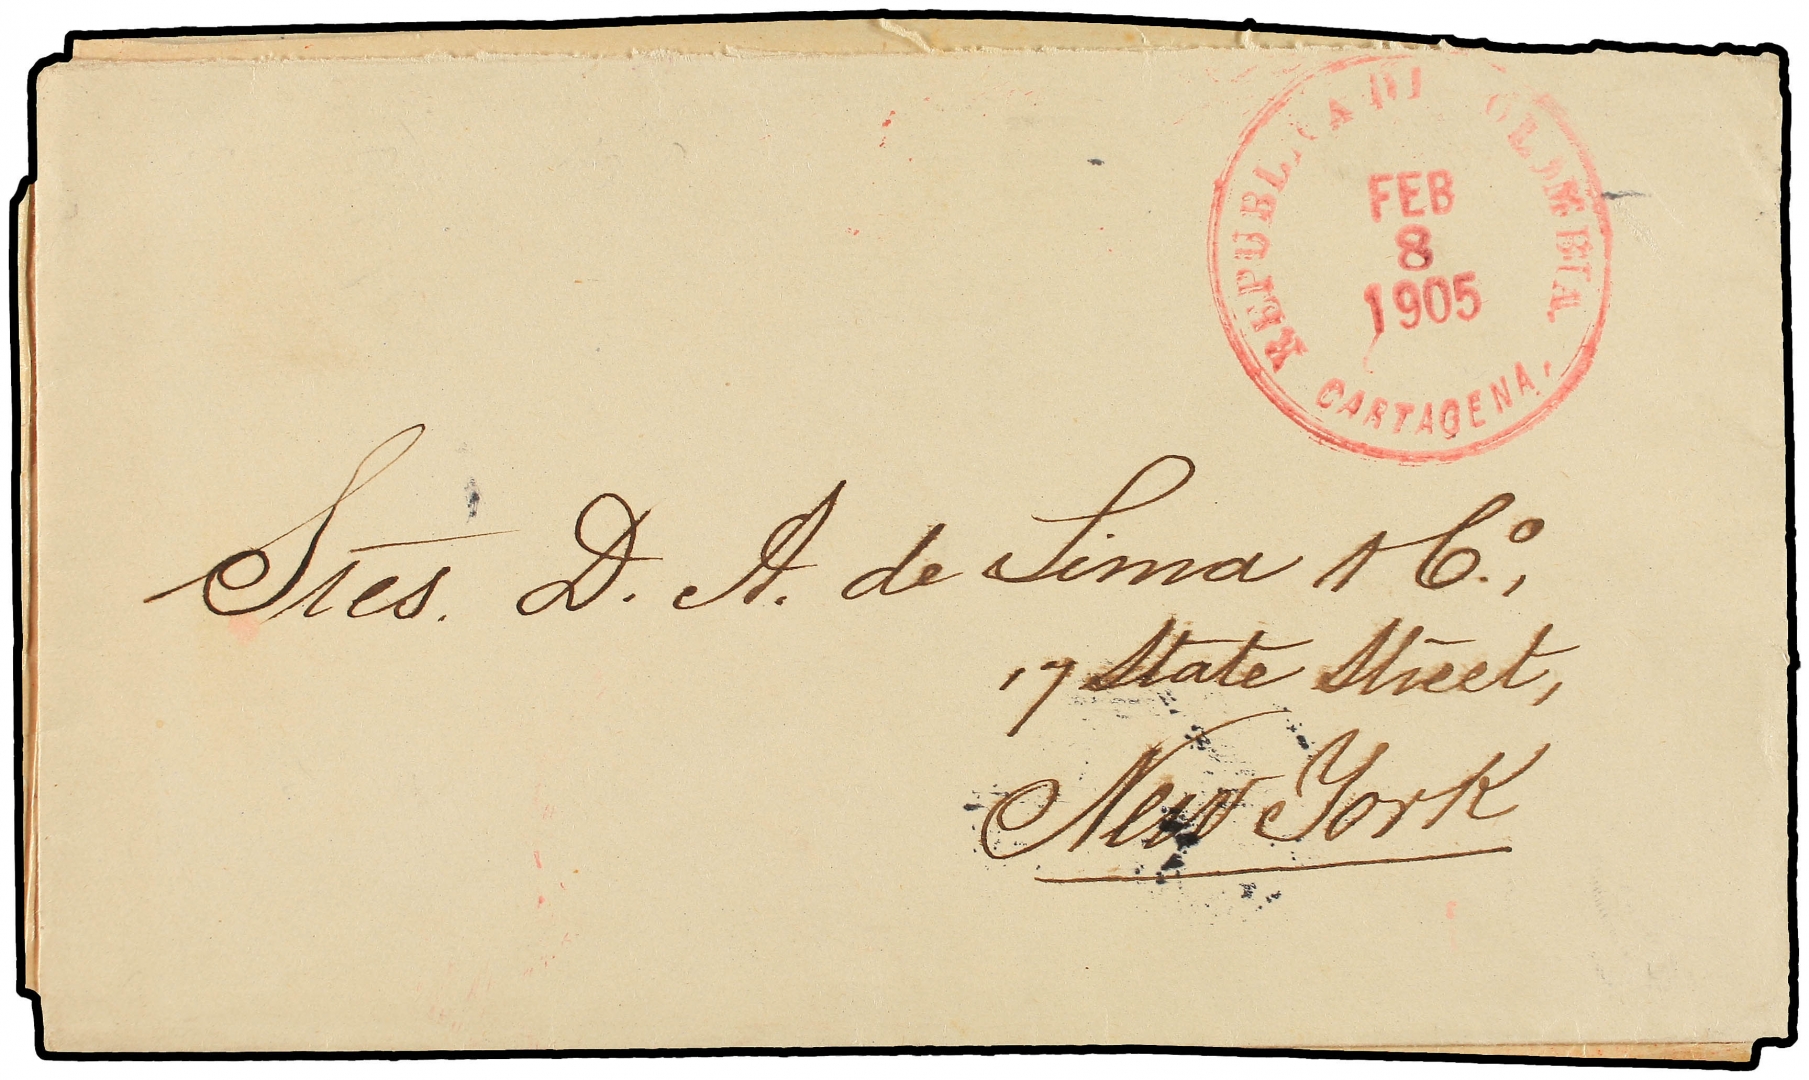 REPUBLICA DE COLOMBIA
FEB
8
1905
CARTAGENA.
Sres. D. A. de Lima & Co.,
17 State Street,
New York